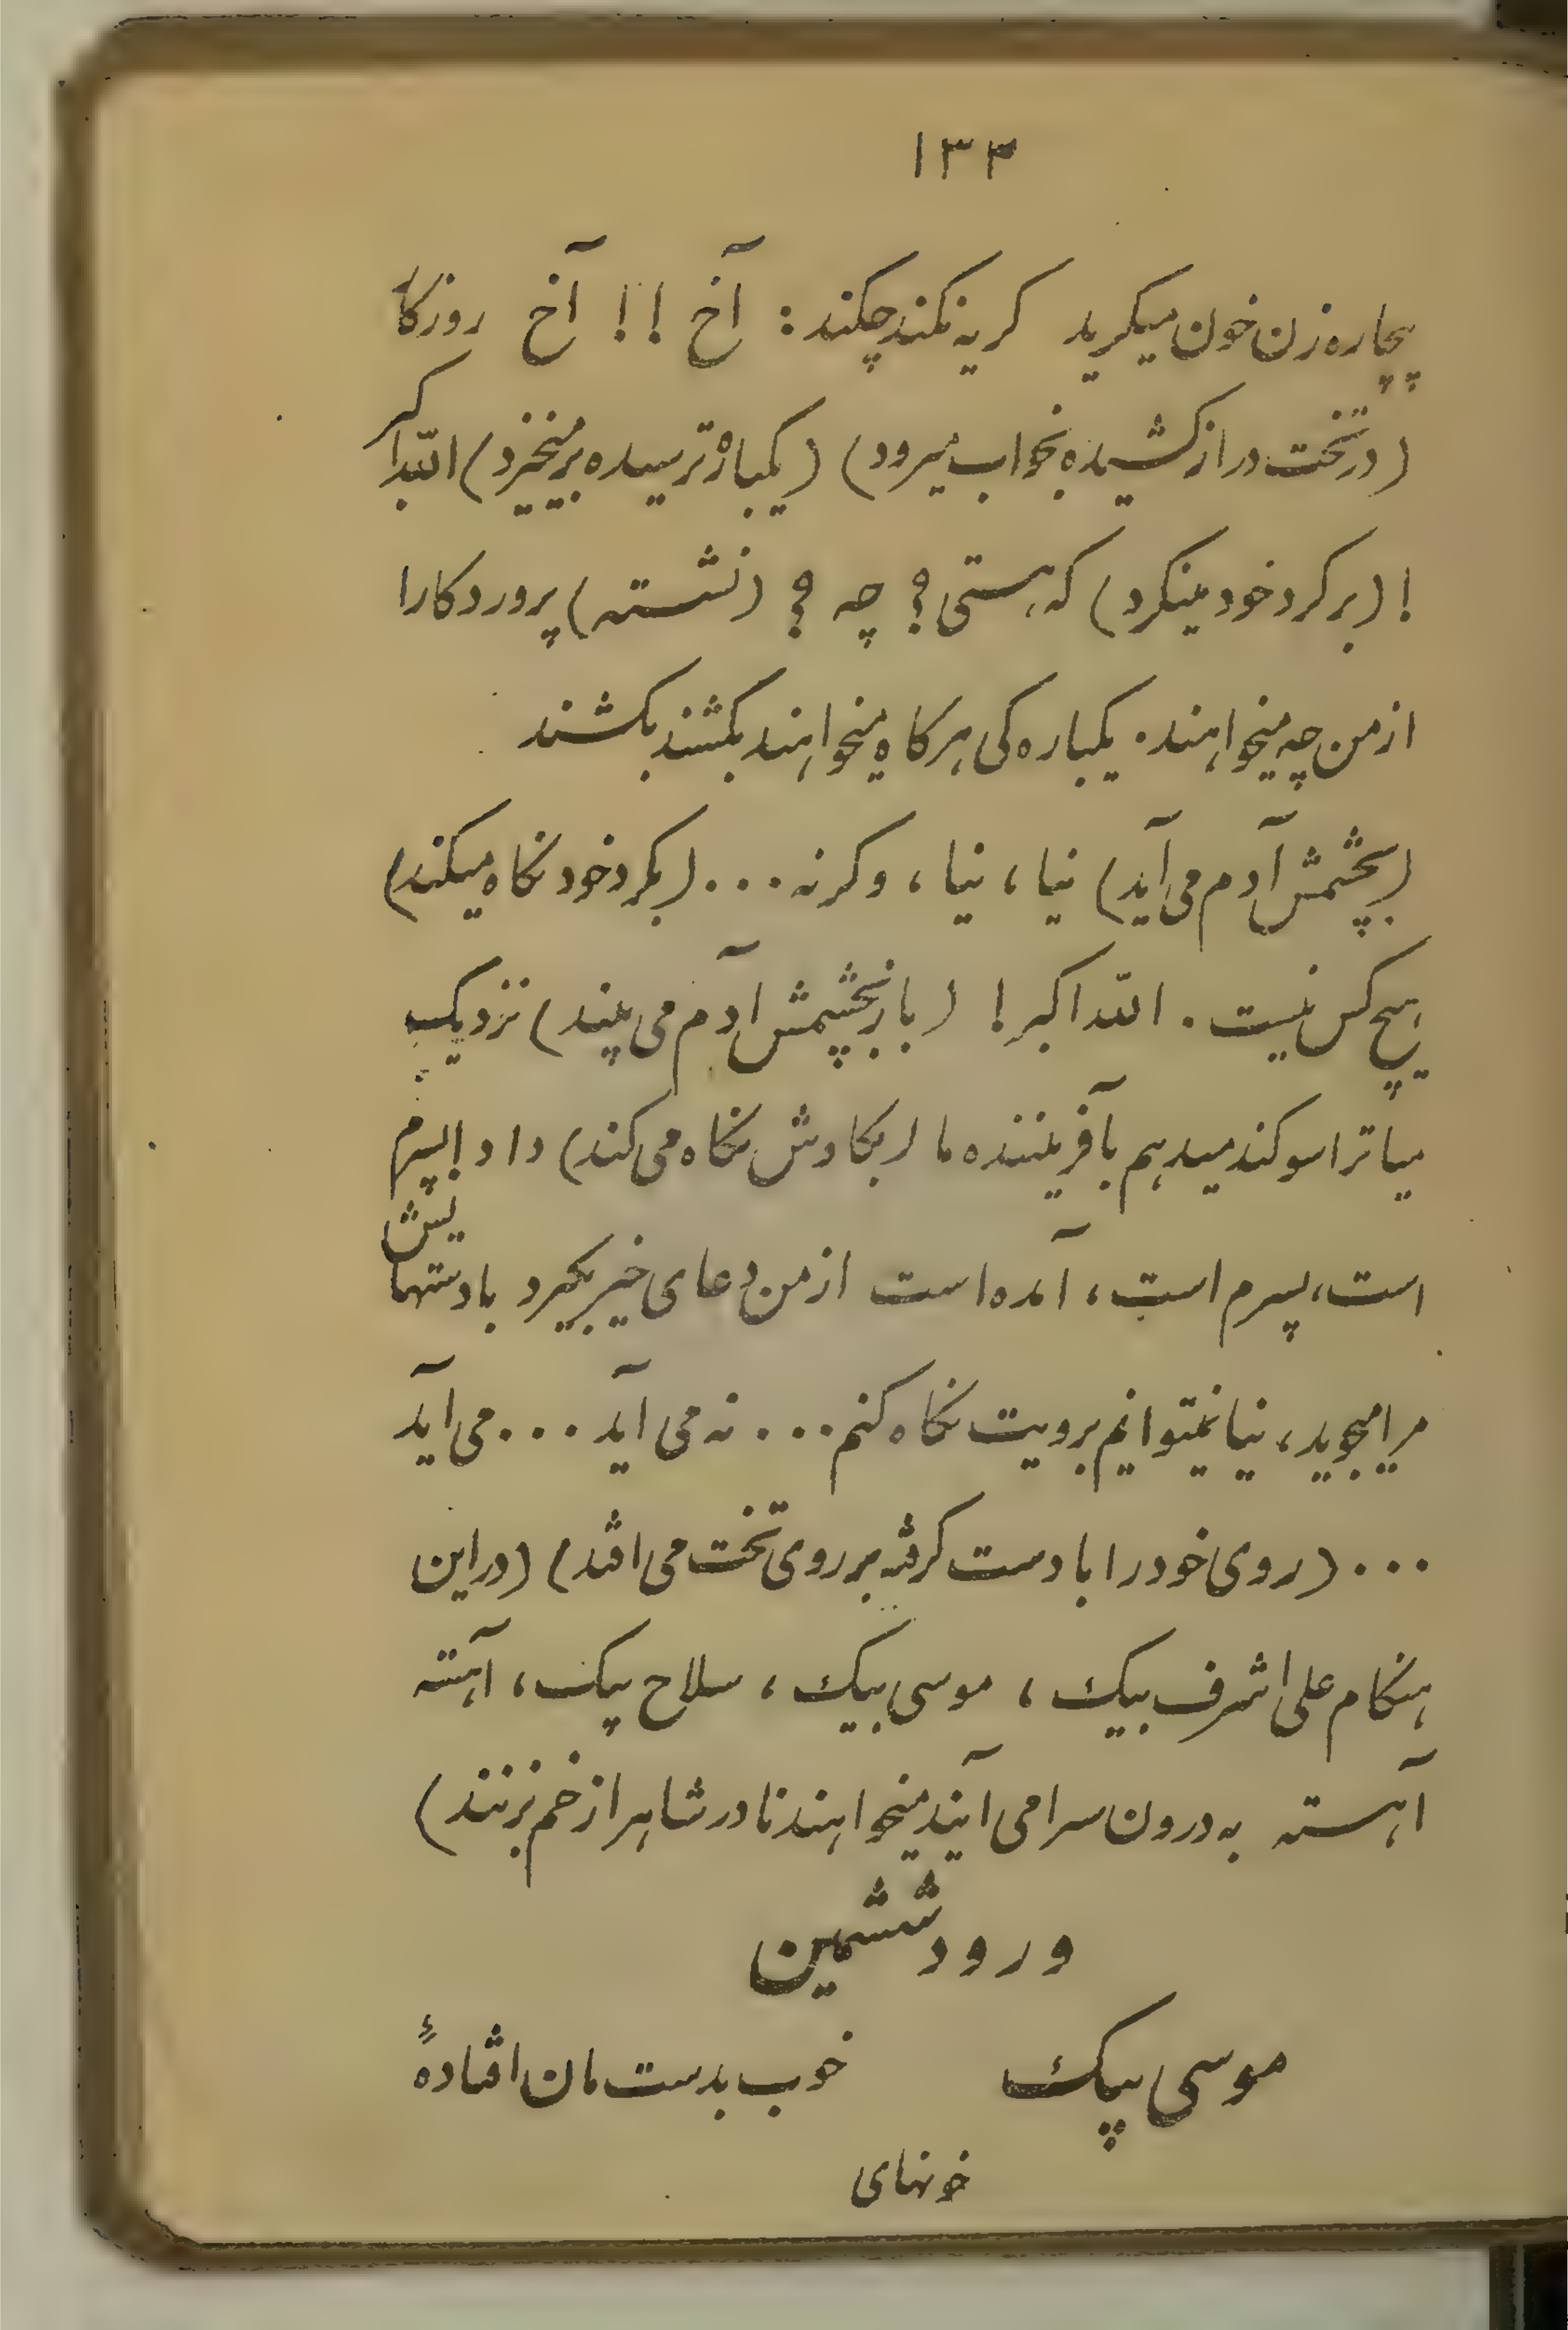 ۱۳۳
بیچاره زن خون میکرید کریه نکند چکند: آخ !! آخ روزکار
(در تخت دراز کشیده بخواب میرود) (یکباره ترسیده برمیخیزد) الله اکبر
! (بر کرد خود مینکرد) که هستی؟ چه؟ (نشسته) پروردکارا
از من چه میخواهند. یکباره کی هر کاه میخواهند بکشند بکشند
(بچشمش آدم می آید) نیا، نیا، و کرنه ... (بکرد خود نکاه میکند)
هیچ کس نیست. الله اکبر! (باز بچشمش آدم می بیند) نزدیک
میا ترا سوکند میدهم بآفریننده ما (بکاوش نکاه می کند) داد اپسرم
است، پسرم است، آمده است از من دعای خیر بکیرد با دستهایش
مرا میجوید، نیا نمیتوانم برویت نکاه کنم ... نه می آید ... می آید
... (روی خود را با دست کرفته بر روی تخت می افتد) (در این
هنکام علی اشرف بیک، موسی بیک، سلاح بیک، آهسته
آهسته به درون سرا می آیند میخواهند نادر شاه را زخم بزنند)
ورود ششمین
موسی بیک خوب بدست مان افتادهٔ
خونهای